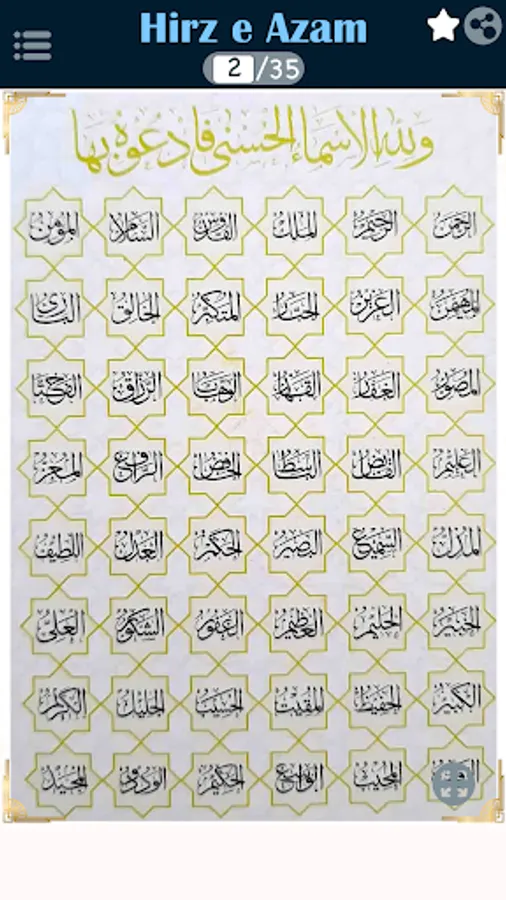 Hirz e Azam
2/35
ولله الاسماء الحسنى فادعوه بها
الرحمن الرحيم الملك القدوس السلام المؤمن
المهيمن العزيز الجبار المتكبر الخالق البارئ
المصور الغفار القهار الوهاب الرزاق الفتاح
العليم القابض الباسط الخافض الرافع المعز
المذل السميع البصير الحكم العدل اللطيف
الخبير الحليم العظيم الغفور الشكور العلي
الكبير الحفيظ المقيت الحسيب الجليل الكريم
المجيب الواسع الحكيم الودود المجيد